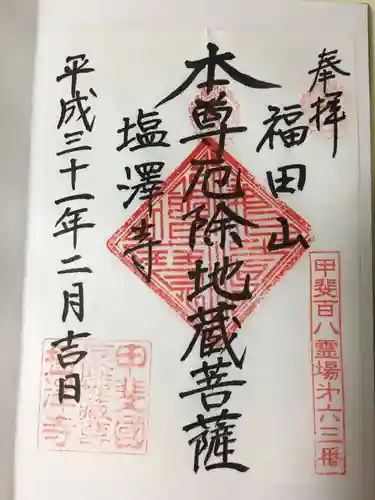 奉拝
甲斐百八霊場第六三番
福田山
本尊厄除地蔵菩薩
塩澤寺
平成三十一年二月吉日
甲斐國
塩澤寺